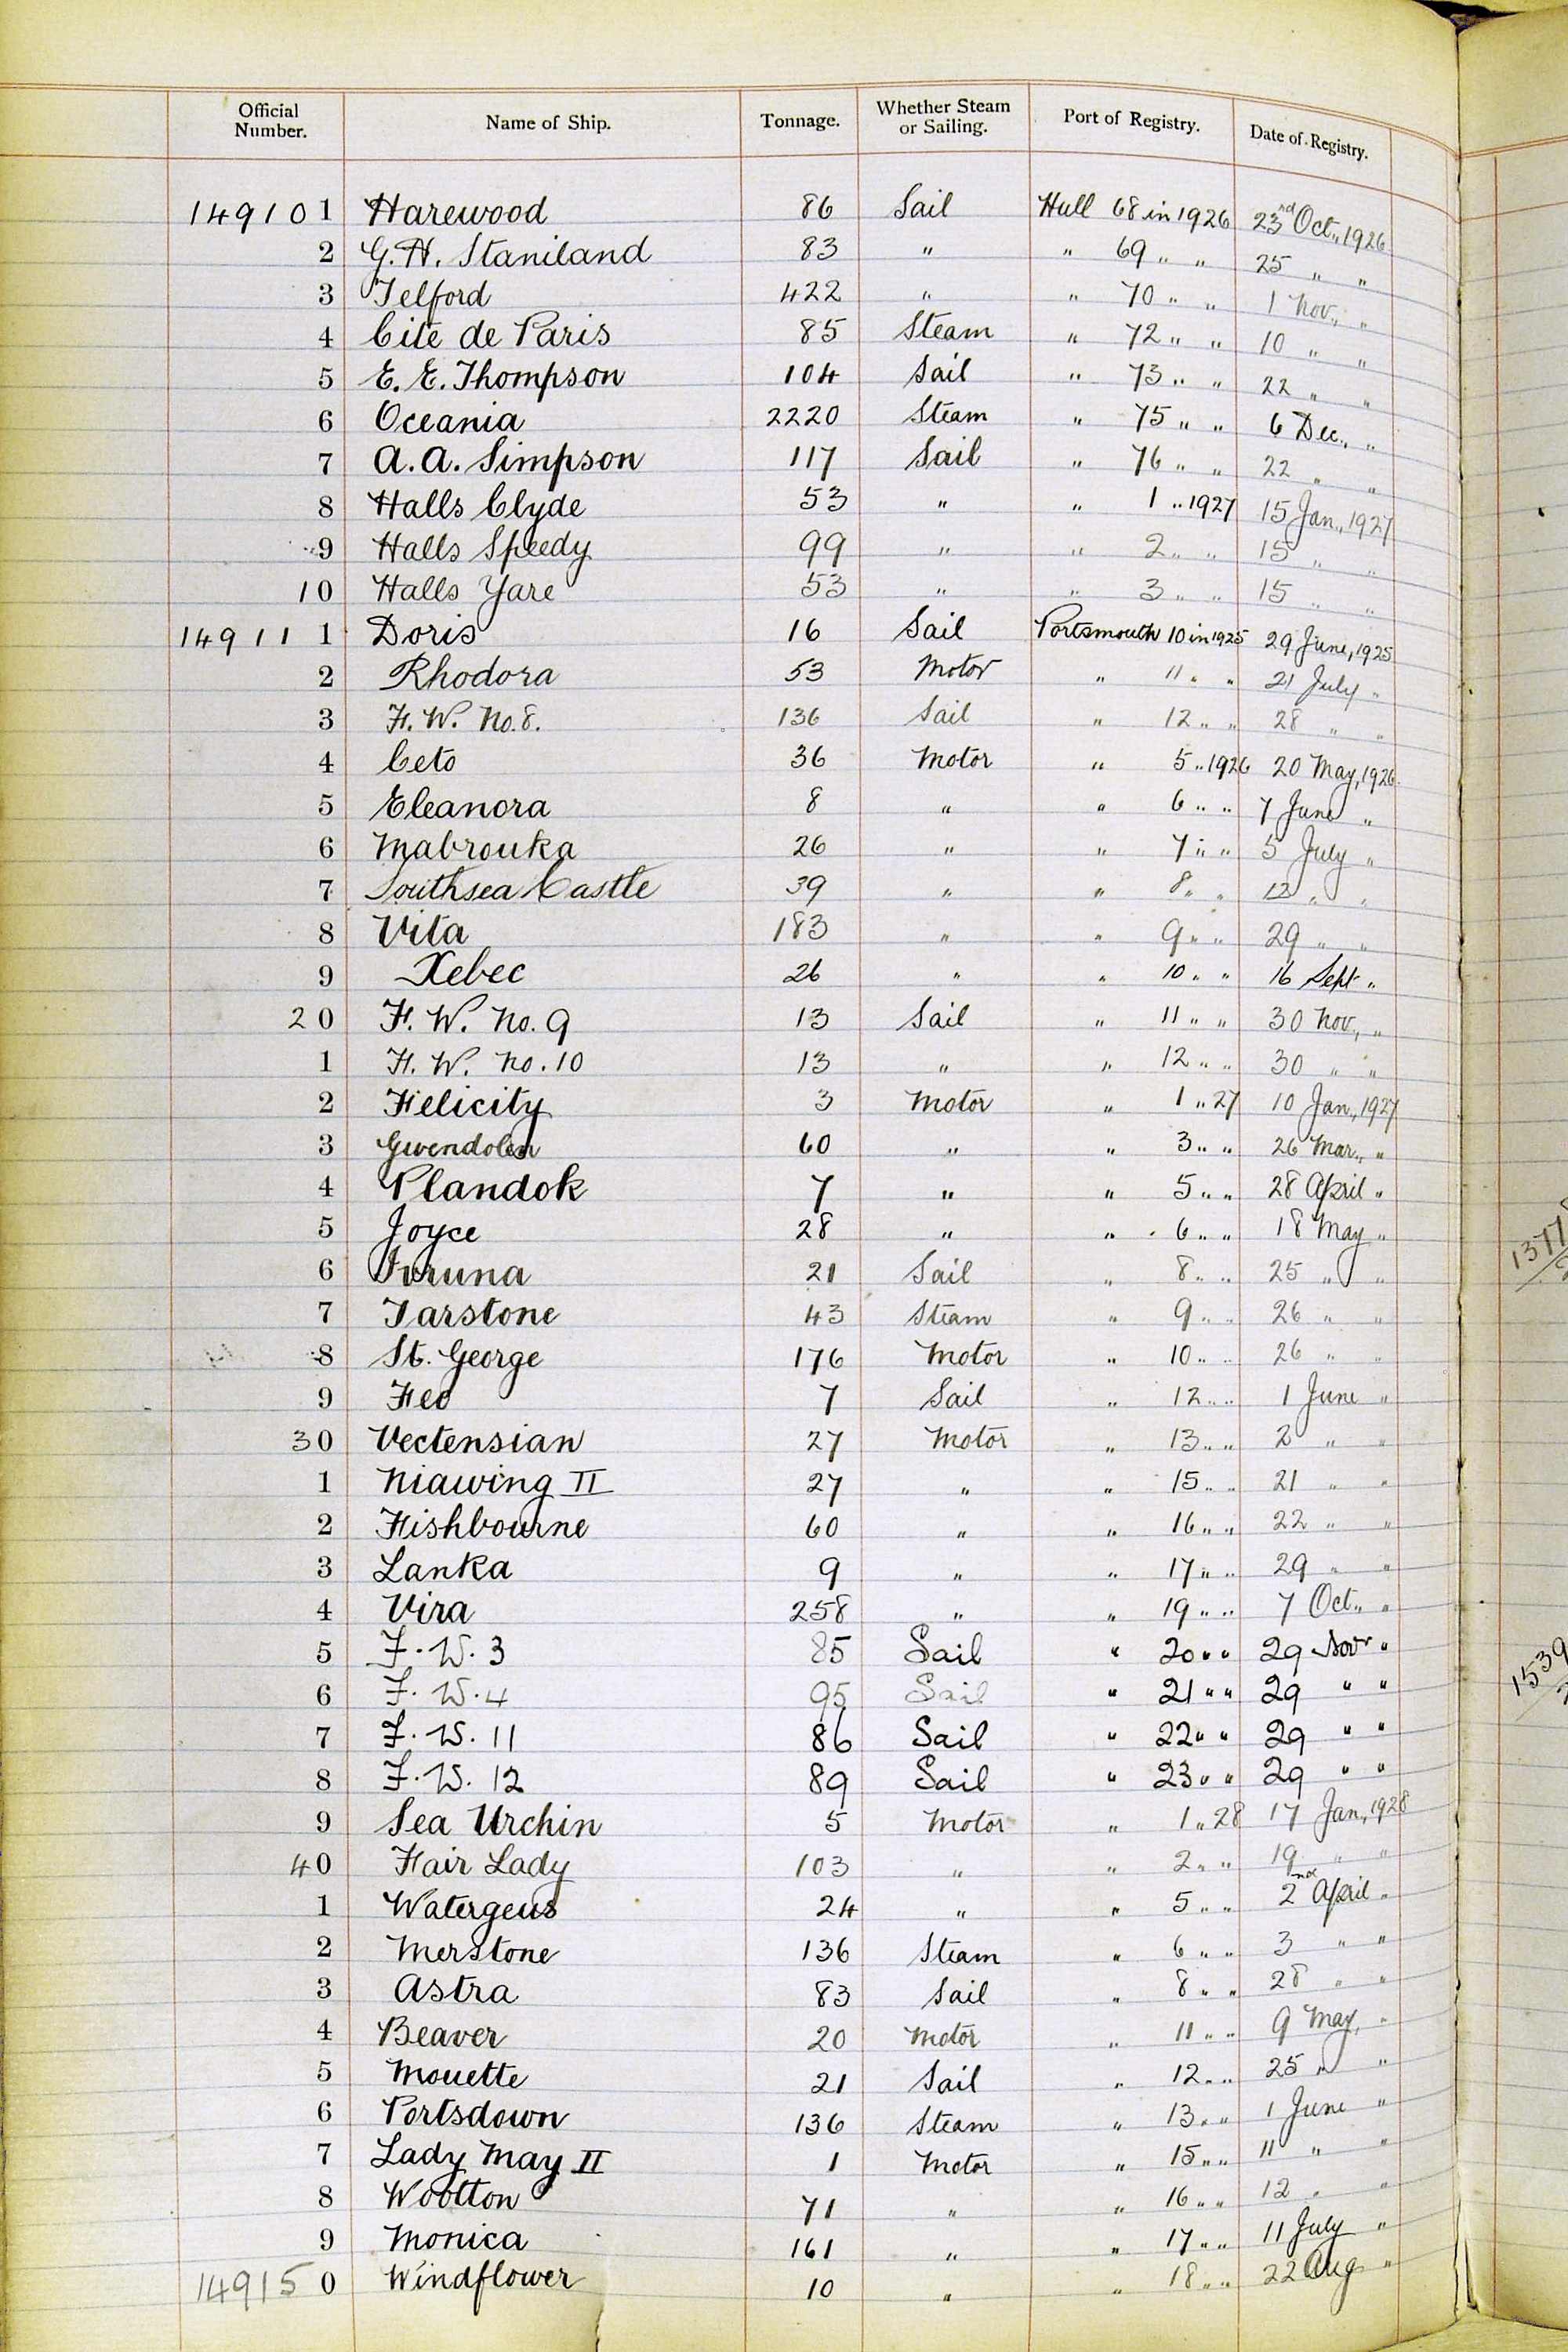 Official Number. Name of Ship. Tonnage. Whether Steam or Sailing. Port of Registry. Date of Registry.
149101 Harewood 86 Sail Hull 68 in 1926 23rd Oct., 1926
2 G. H. Staniland 83 " " 69 " " 25 " "
3 Telford 422 " " 70 " " 1 Nov., "
4 Cite de Paris 85 Steam " 72 " " 10 " "
5 E. E. Thompson 104 Sail " 73 " " 22 " "
6 Oceania 2220 Steam " 75 " " 6 Dec., "
7 A. A. Simpson 117 Sail " 76 " " 22 " "
8 Halls Clyde 53 " " 1 " 1927 15 Jan., 1927
9 Halls Speedy 99 " " 2 " " 15 " "
10 Halls Yare 53 " " 3 " " 15 " "
149111 Doris 16 Sail Portsmouth 10 in 1925 29 June, 1925
2 Rhodora 53 Motor " 11 " " 21 July "
3 F. W. No. 8. 136 Sail " 12 " " 28 " "
4 Ceto 36 Motor " 5 " 1926 20 May, 1926.
5 Eleanora 8 " " 6 " " 7 June "
6 Mabrouka 26 " " 7 " " 5 July "
7 Southsea Castle 39 " " 8 " " 13 " "
8 Vita 183 " " 9 " " 29 " "
9 Xebec 26 " " 10 " " 16 Sept "
20 F. W. No. 9 13 Sail " 11 " " 30 Nov., "
1 F. W. No. 10 13 " " 12 " " 30 " "
2 Felicity 3 Motor " 1 " 27 10 Jan., 1927
3 Gwendolen 60 " " 3 " " 26 Mar., "
4 Plandok 7 " " 5 " " 28 April "
5 Joyce 28 " " 6 " " 18 May "
6 21 Sail " 8 " " 25 " "
7 Tarstone 43 Steam " 9 " " 26 " "
8 St. George 176 Motor " 10 " " 26 " "
9 Feo 7 Sail " 12 " " 1 June "
30 Vectensian 27 Motor " 13 " " 2 " "
1 Niawing II 27 " " 15 " " 21 " "
2 Fishbourne 60 " " 16 " " 22 " "
3 Lanka 9 " " 17 " " 29 " "
4 Vira 258 " " 19 " " 7 Oct., "
5 F. W. 3 85 Sail " 20 " " 29 Novr "
6 F. W. 4 95 Sail " 21 " " 29 " "
7 F. W. 11 86 Sail " 22 " " 29 " "
8 F. W. 12 89 Sail " 23 " " 29 " "
9 Sea Urchin 5 Motor " 1 " 28 17 Jan., 1928
40 Fair Lady 103 " " 2 " " 19 " "
1 Watergeus 24 " " 5 " " 2nd April "
2 Merstone 136 Steam " 6 " " 3 " "
3 Astra 83 Sail " 8 " " 28 " "
4 Beaver 20 Motor " 11 " " 9 May, "
5 Mouette 21 Sail " 12 " " 25 " "
6 Portsdown 136 Steam " 13 " " 1 June "
7 Lady May II 1 Motor " 15 " " 11 " "
8 Wootton 71 " " 16 " " 12 " "
9 Monica 161 " " 17 " " 11 July "
149150 Windflower 10 " " 18 " " 22 Aug "